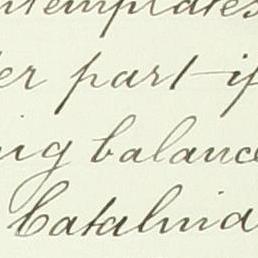 ntemplates
er part if
ing balance
Catalina